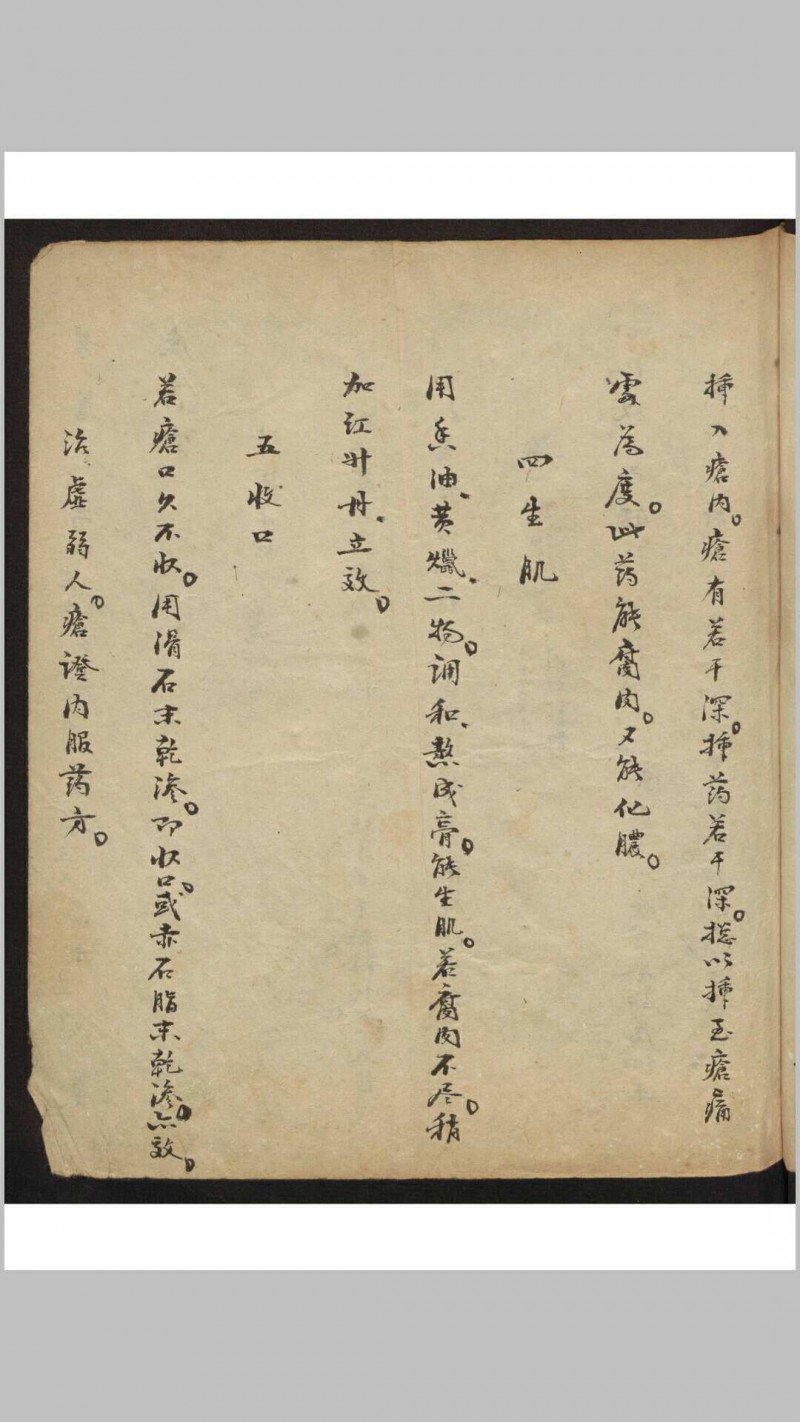 插入瘡内。瘡有若干深。插药若干深。總以插至瘡痛
處為度。此药能腐肉。又能化膿。
四生肌
用香油、黄蠟、二物。調和、熬成膏。能生肌。若腐肉不尽。稍
加红升丹、立效。
五收口
若瘡口久不收。用滑石末乾滲。即收口。或赤石脂末乾滲。亦效。
治虛弱人。瘡證内服药方。